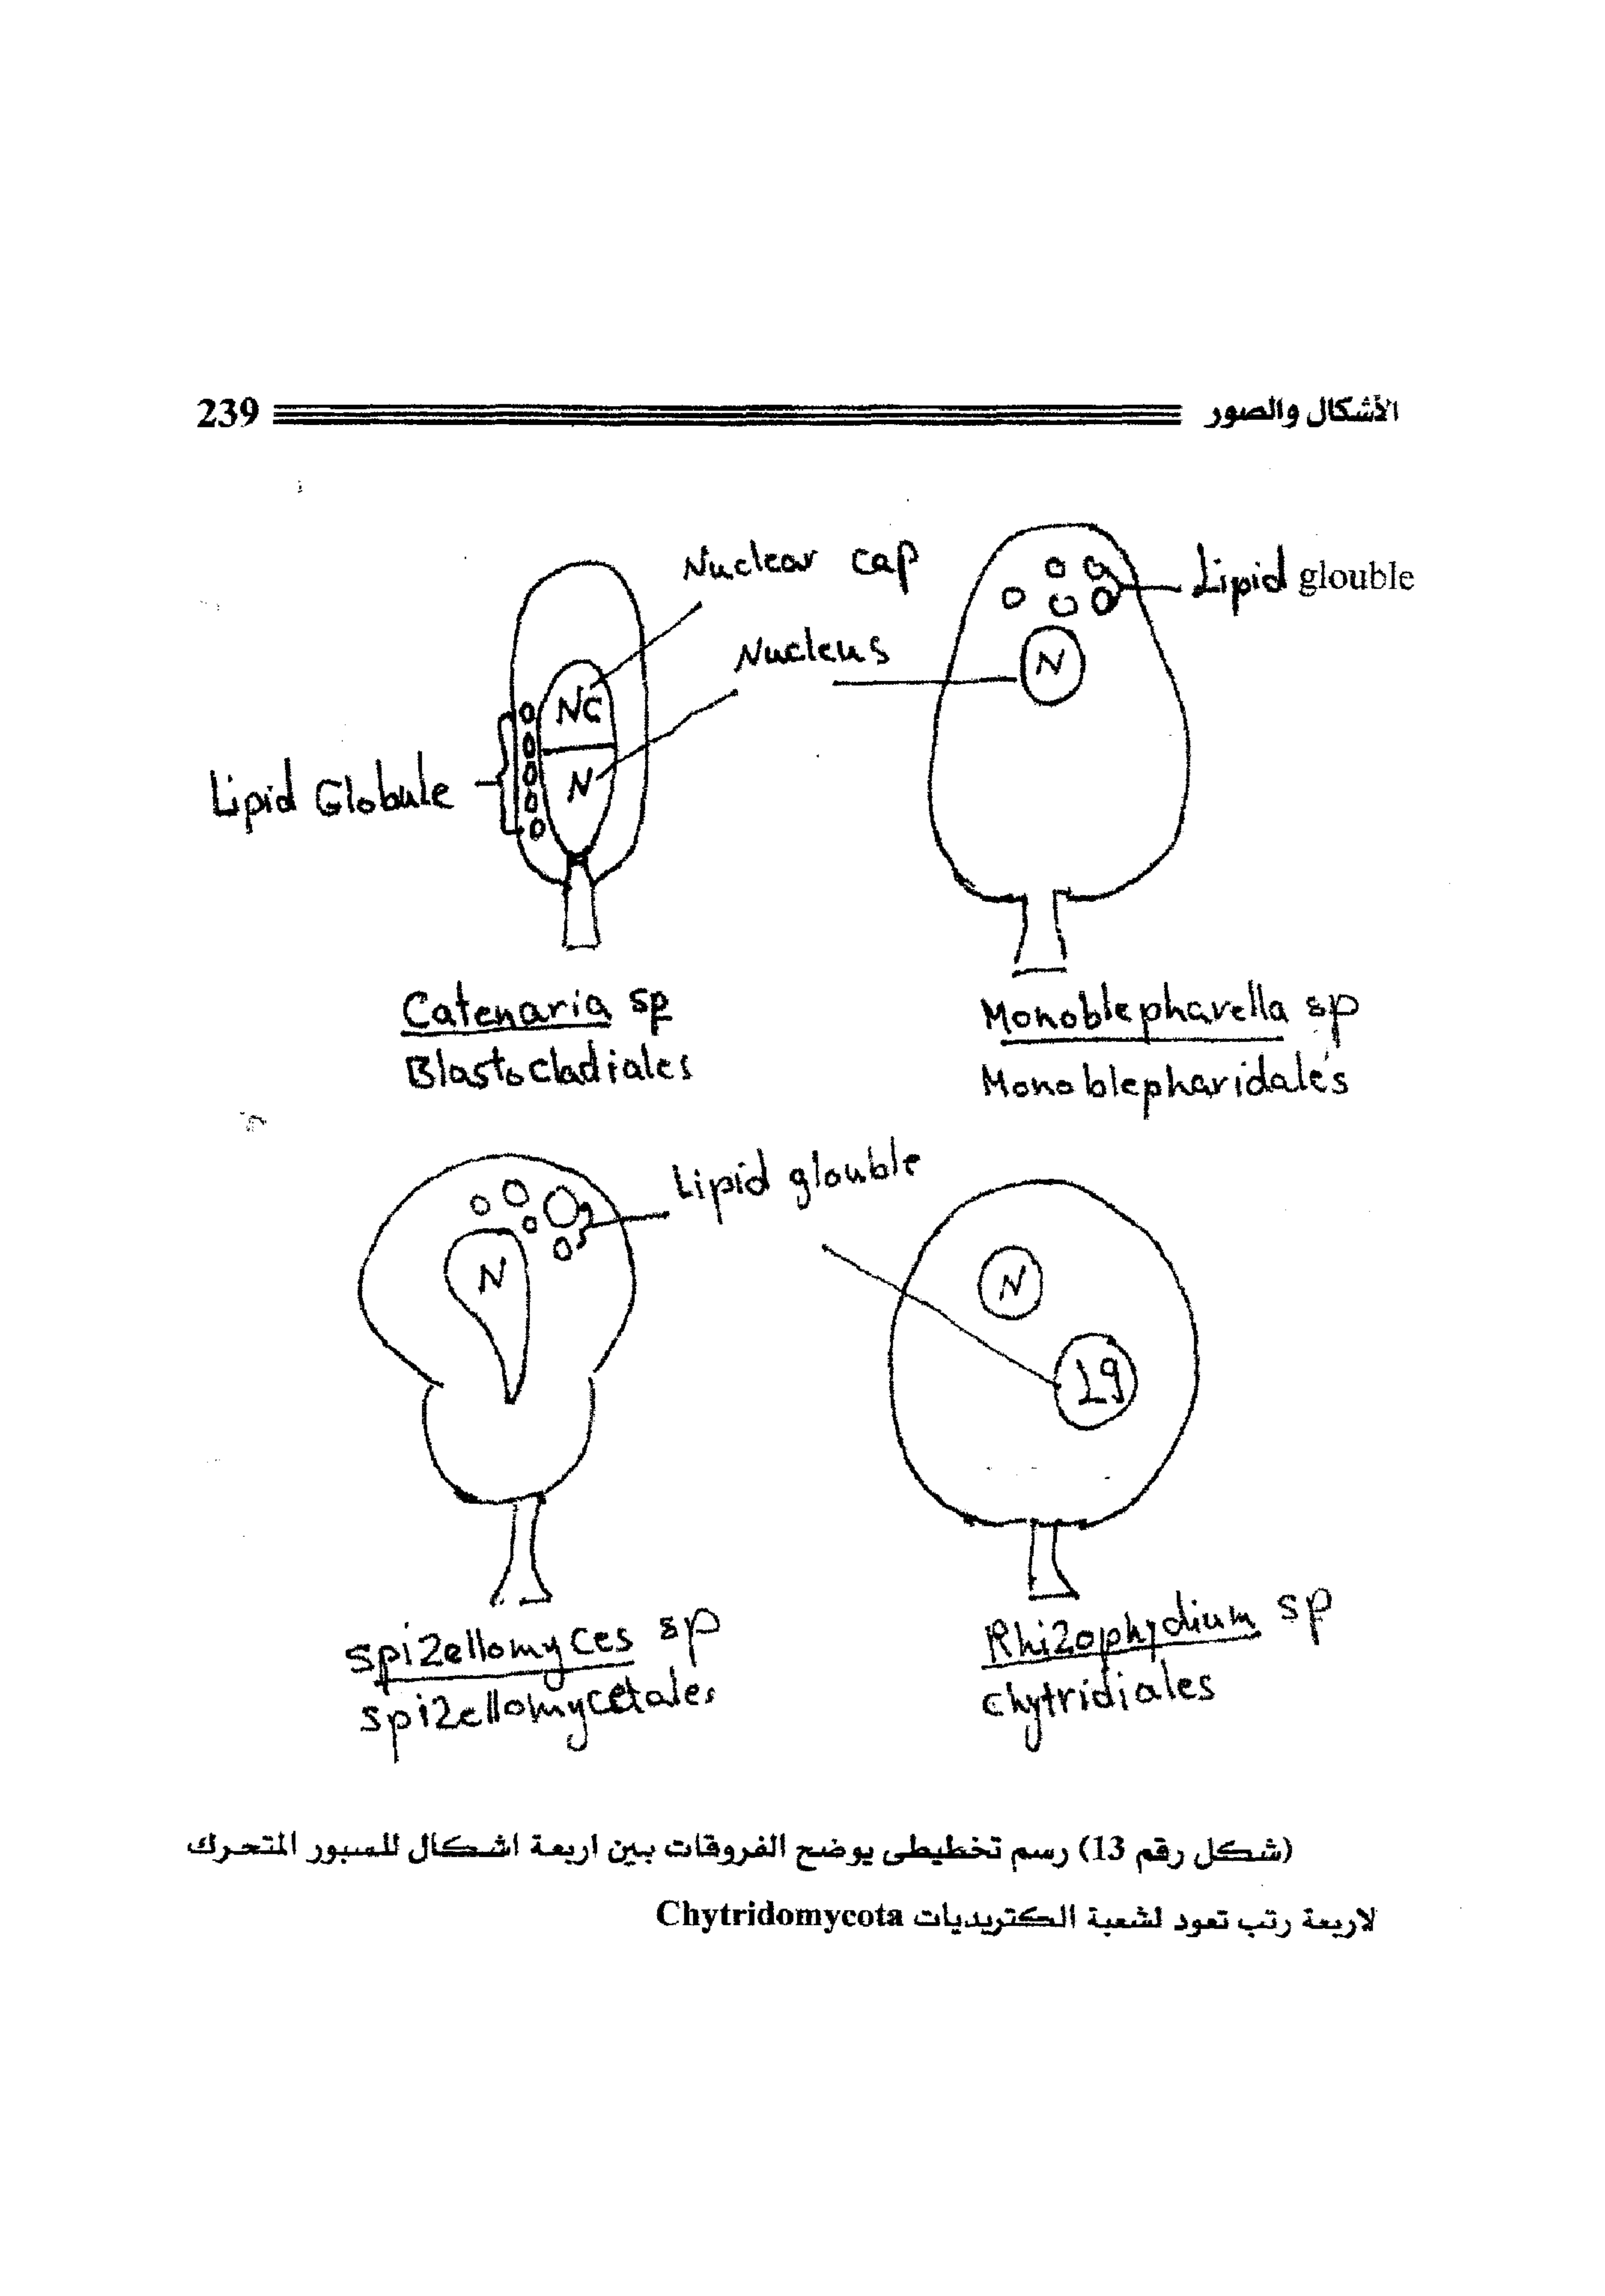 الأشكال والصور 239
Nuclear cap
Lipid glouble
Nucleus
N
NC
N
Lipid Globule
Catenaria sp
Blastocladiales
Monoblepharella sp
Monoblepharidales
Lipid glouble
N
N
Lg
Spizellomyces sp
Spizellomycetales
Rhizophydium sp
chytridiales
(شكل رقم 13) رسم تخطيطى يوضح الفروقات بين اربعة اشكال للسبور المتحرك
لاربعة رتب تعود لشعبة الكتريديات Chytridomycota